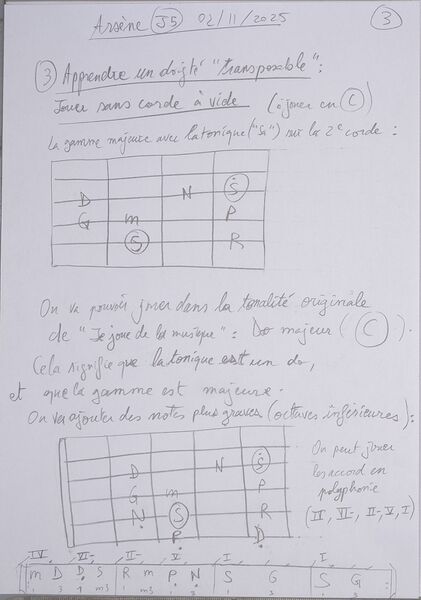 Arsène (J5) 02/11/2025 (3)
(3) Apprendre un doigté "transposable" :
Jouer sans corde à vide (à jouer en (C))
La gamme majeure avec la tonique ("S") sur la 2e corde :
D N Ṡ
G m P
S R
On va pouvoir jouer dans la tonalité originale
de "Je joue de la musique" : Do majeur ((C)).
Cela signifie que la tonique est un do,
et que la gamme est majeure.
On va ajouter des notes plus graves (octaves inférieures) :
D N Ṡ
G m P
Ṇ S R
P Ḍ
On peut jouer
les accord en
polyphonie
(IV, VI-, II-, V, I)
IV VI- II- V I I
m D Ḍ S R m P̣ Ṇ S G S G
1 3 1 m3 1 m3 1 3 1 3 1 3